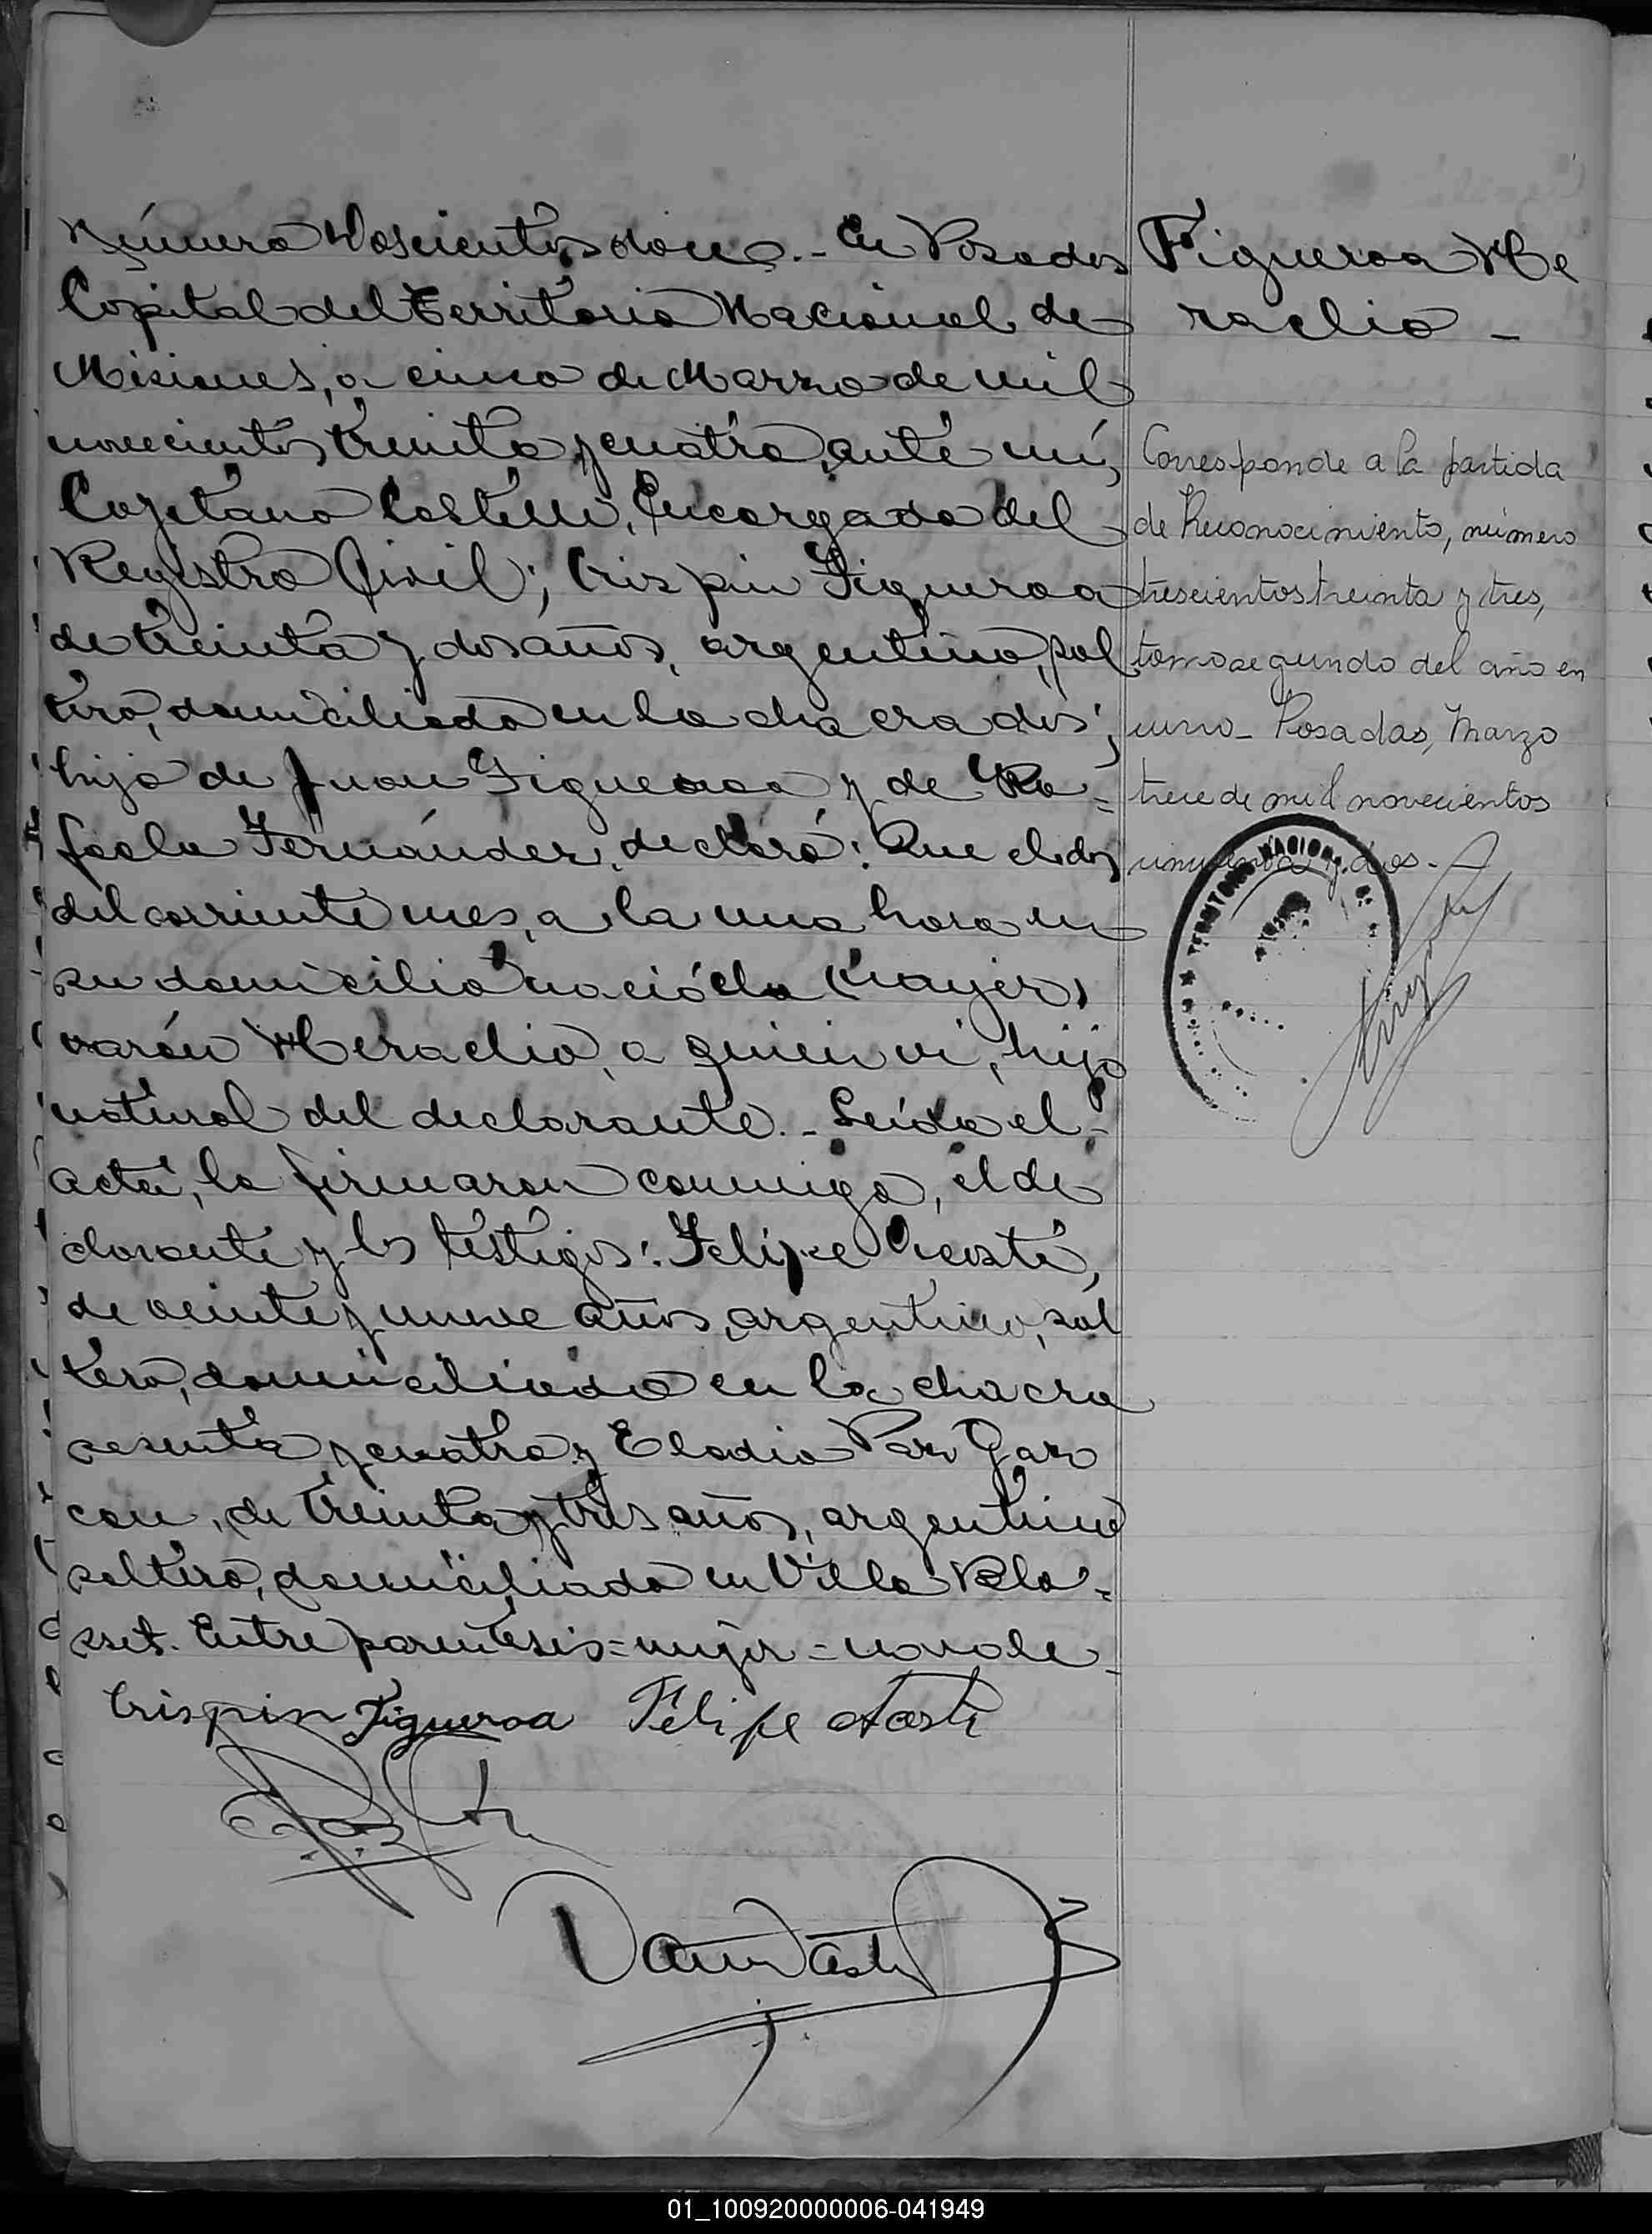 Número Doscientos doce.- En Posadas
Capital del Territorio Nacional de
Misiones, a cinco de Marzo de mil
novecientos treinta y cuatro, ante mí,
Cayetano Castelli, Encargado del
Registro Civil; Crispin Figueroa
de treinta y dos años, argentino, sol
tero, domiciliado en la cha cra dos;
hijo de Juan Figueroa y de Ra=
faela Fernández, declaró: Que el dos
del corriente mes, a la una hora en
su domicilio nació la (mujer)
varón Heraclio, a quien vi, hijo
natural del declarante.- Leída el
acta, la firmaron conmigo, el de
clarante y los testigos: Felipe
de veinte y nueve años, argentino, sol
tero, domiciliado en la chacra
sesenta y cuatro y Eladio Paz Gar
con, de treinta y tres años, argentino
soltero, domiciliado en Villa Blo=
sset. Entre paréntesis=mujer=no vale-
Crispin Figueroa Felipe
Figueroa He
raclio -
Corresponde a la partida
de Reconocimiento, número
trescientos treinta y tres,
tomo segundo del año en
curso- Posadas, Marzo
trece de mil novecientos
cincuenta y dos.-
TERRITORIO NACIONAL
01_100920000006-041949